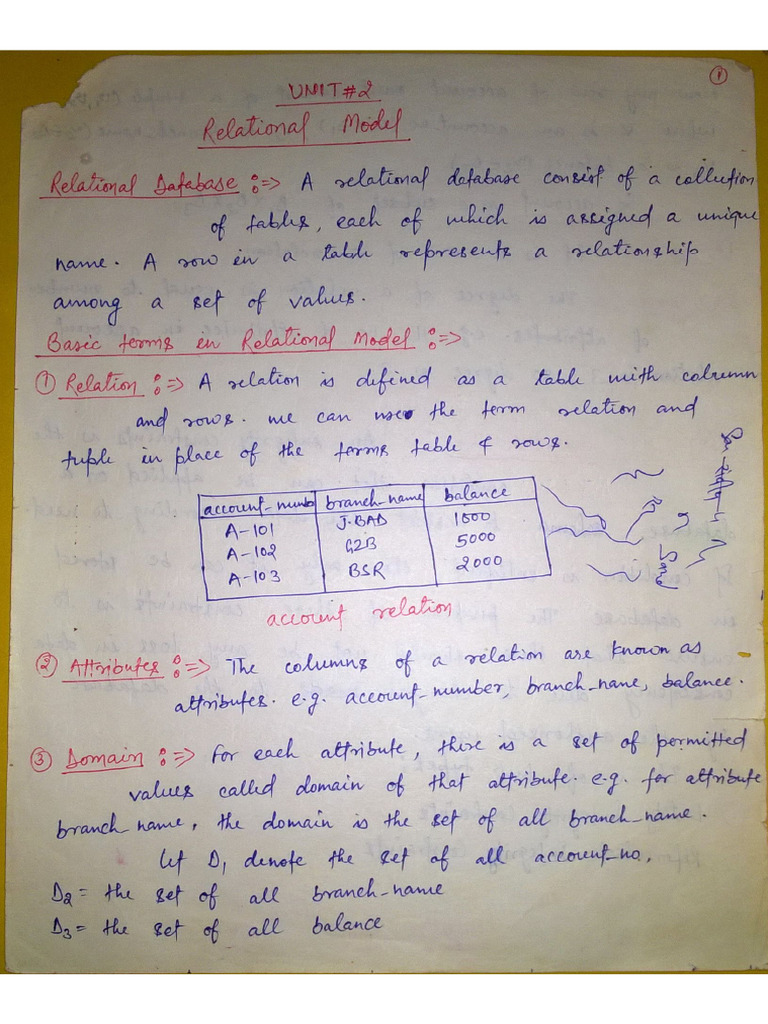 1
UNIT#2
Relational Model
Relational Database :=> A relational database consist of a collection
of tables, each of which is assigned a unique
name. A row in a table represents a relationship
among a set of values.
Basic terms in Relational Model :=>
① Relation :=> A relation is defined as a table with column
and rows. we can use the term relation and
tuple in place of the terms table & rows.
account_numb branch_name balance
A-101 J.BAD 1000
A-102 GZB 5000
A-103 BSR 2000
account relation
② Attributes :=> The columns of a relation are known as
attributes. e.g. account_number, branch_name, balance.
③ Domain :=> for each attribute, there is a set of permitted
values called domain of that attribute. e.g. for attribute
branch_name, the domain is the set of all branch_name.
let D1 denote the set of all account_no.
D2 = the set of all branch-name
D3 = the set of all balance